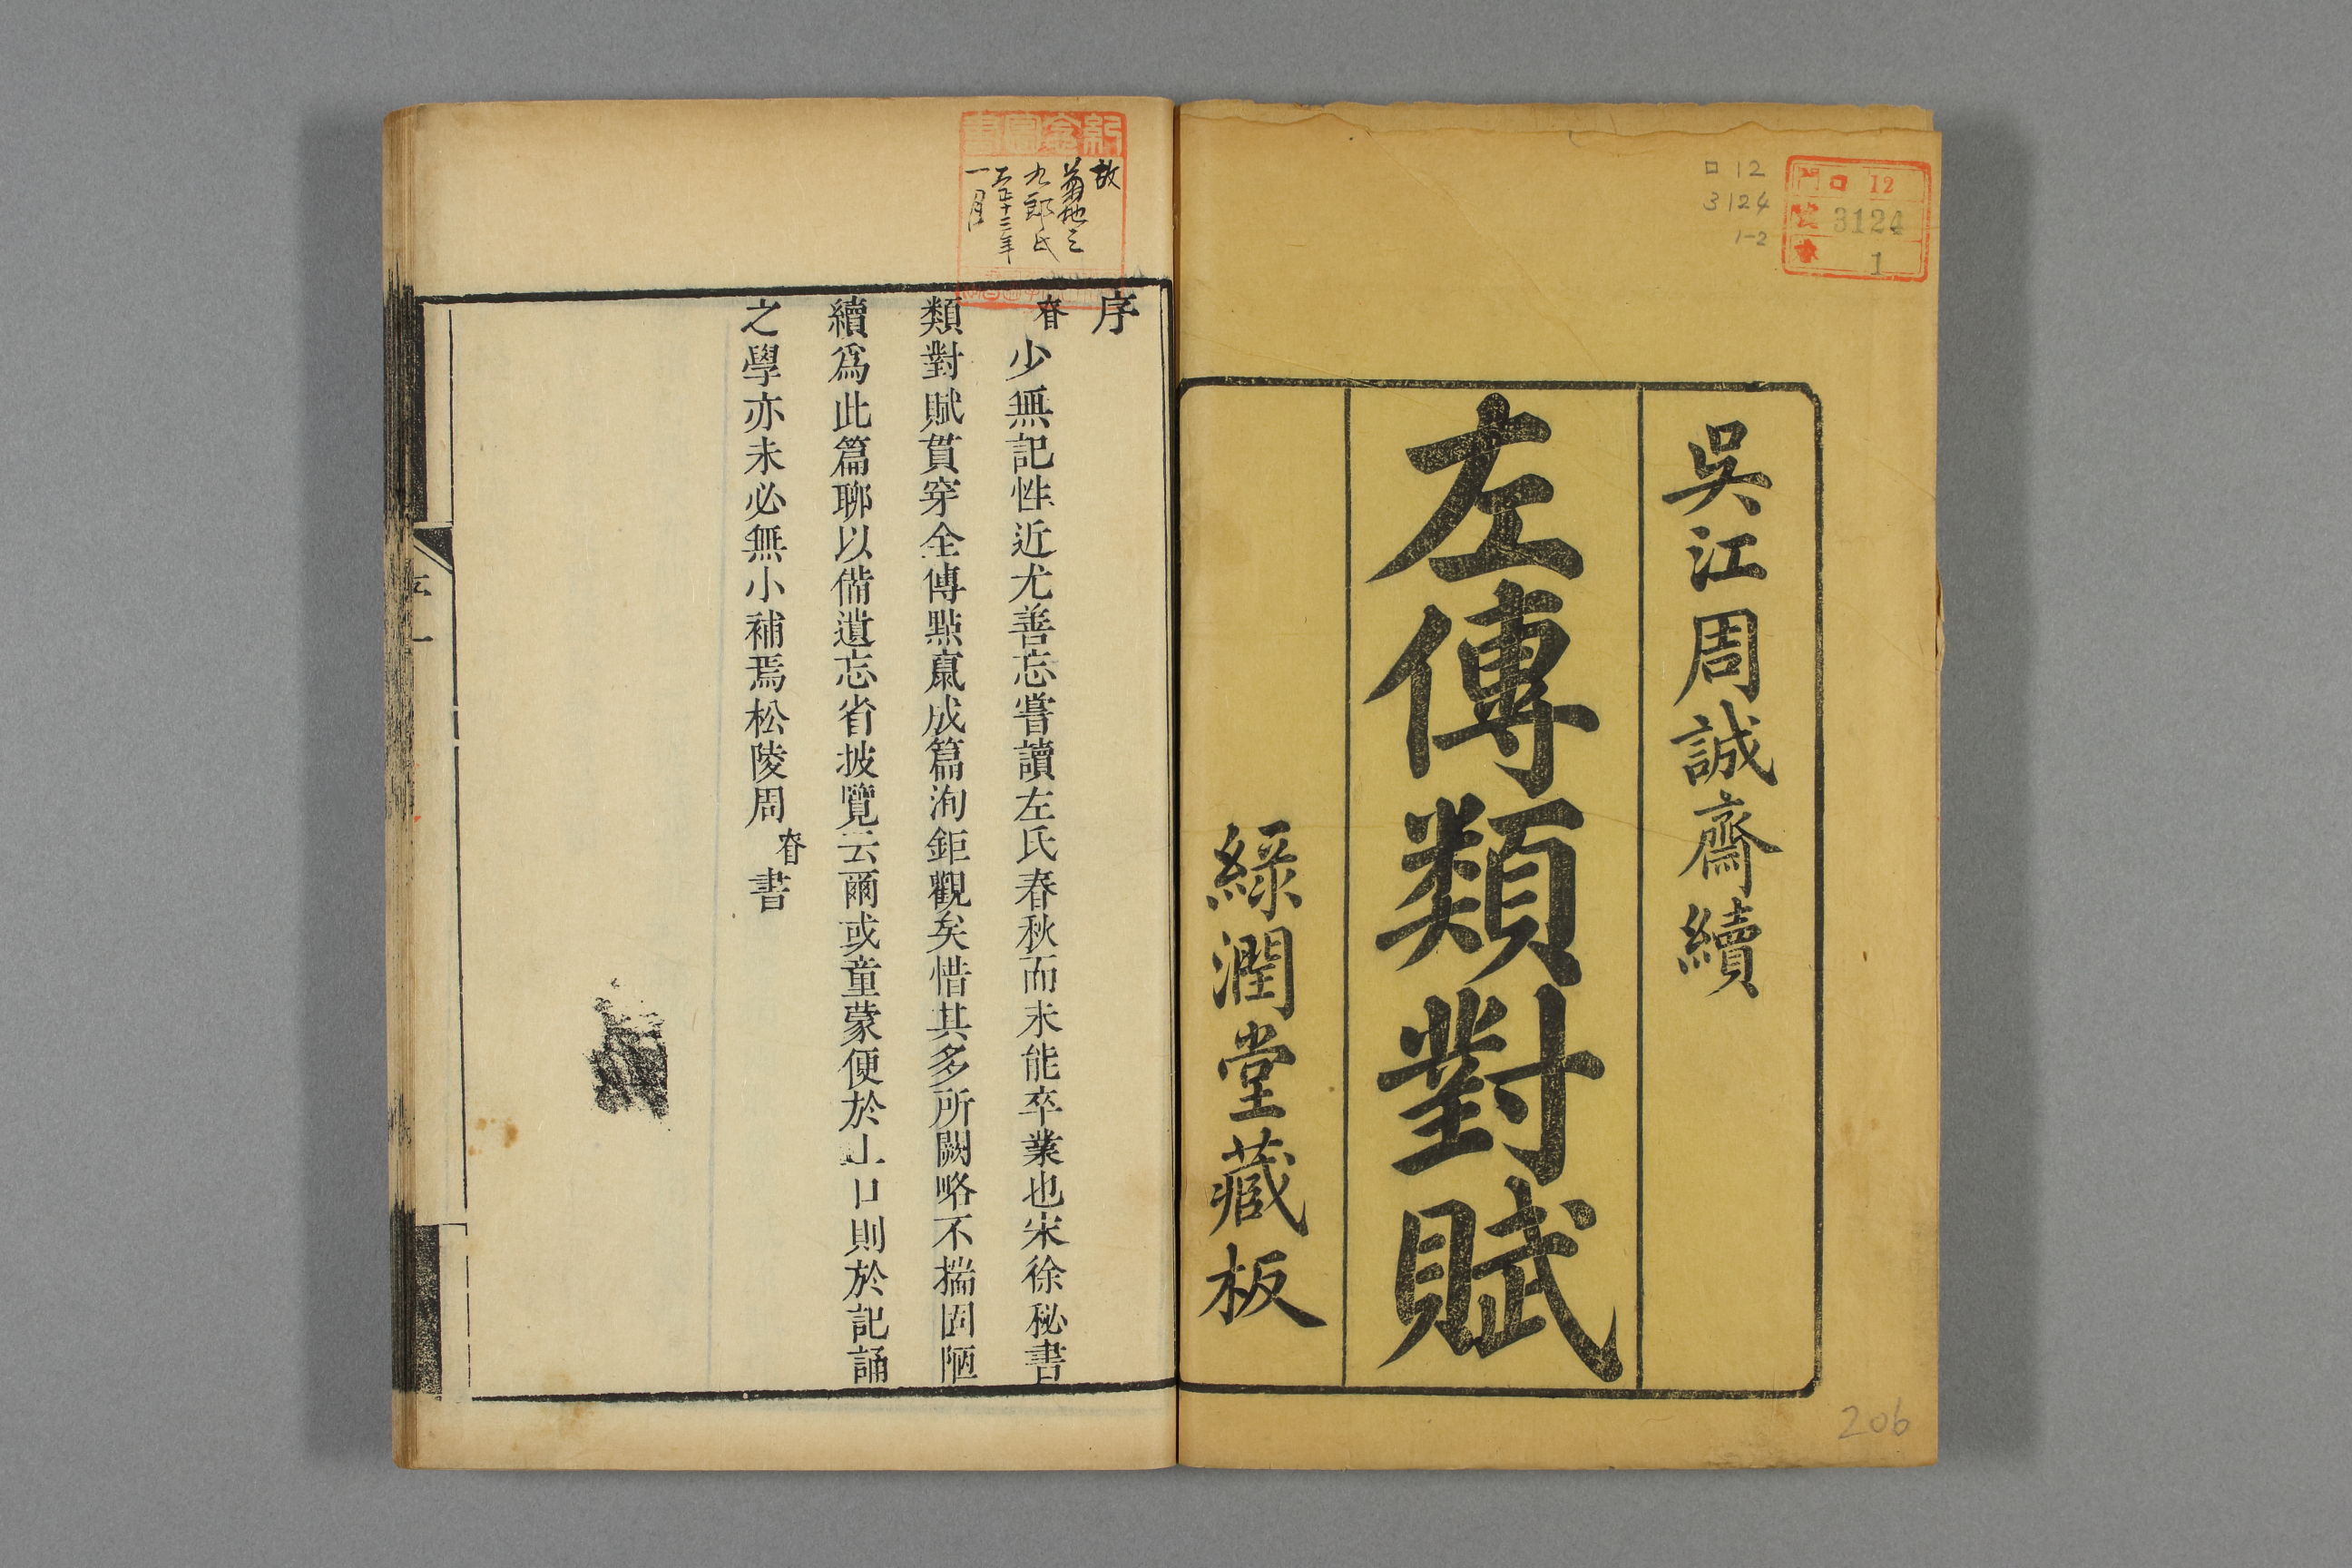 吳江周誠齋續
左傳類對賦
綠潤堂藏板
口 12
3124
1-2
門 口 12
號 3124
1
206
紀念圖書
故
菊地三
九郎氏
大正十二年
一月
序
眘少無記性近尤善忘嘗讀左氏春秋而未能卒業也宋徐秘書
類對賦貫穿全傳點竄成篇洵鉅觀矣惜其多所闕略不揣固陋
續爲此篇聊以備遺忘省披覽云爾或童蒙便於上口則於記誦
之學亦未必無小補焉松陵周眘書
序 一